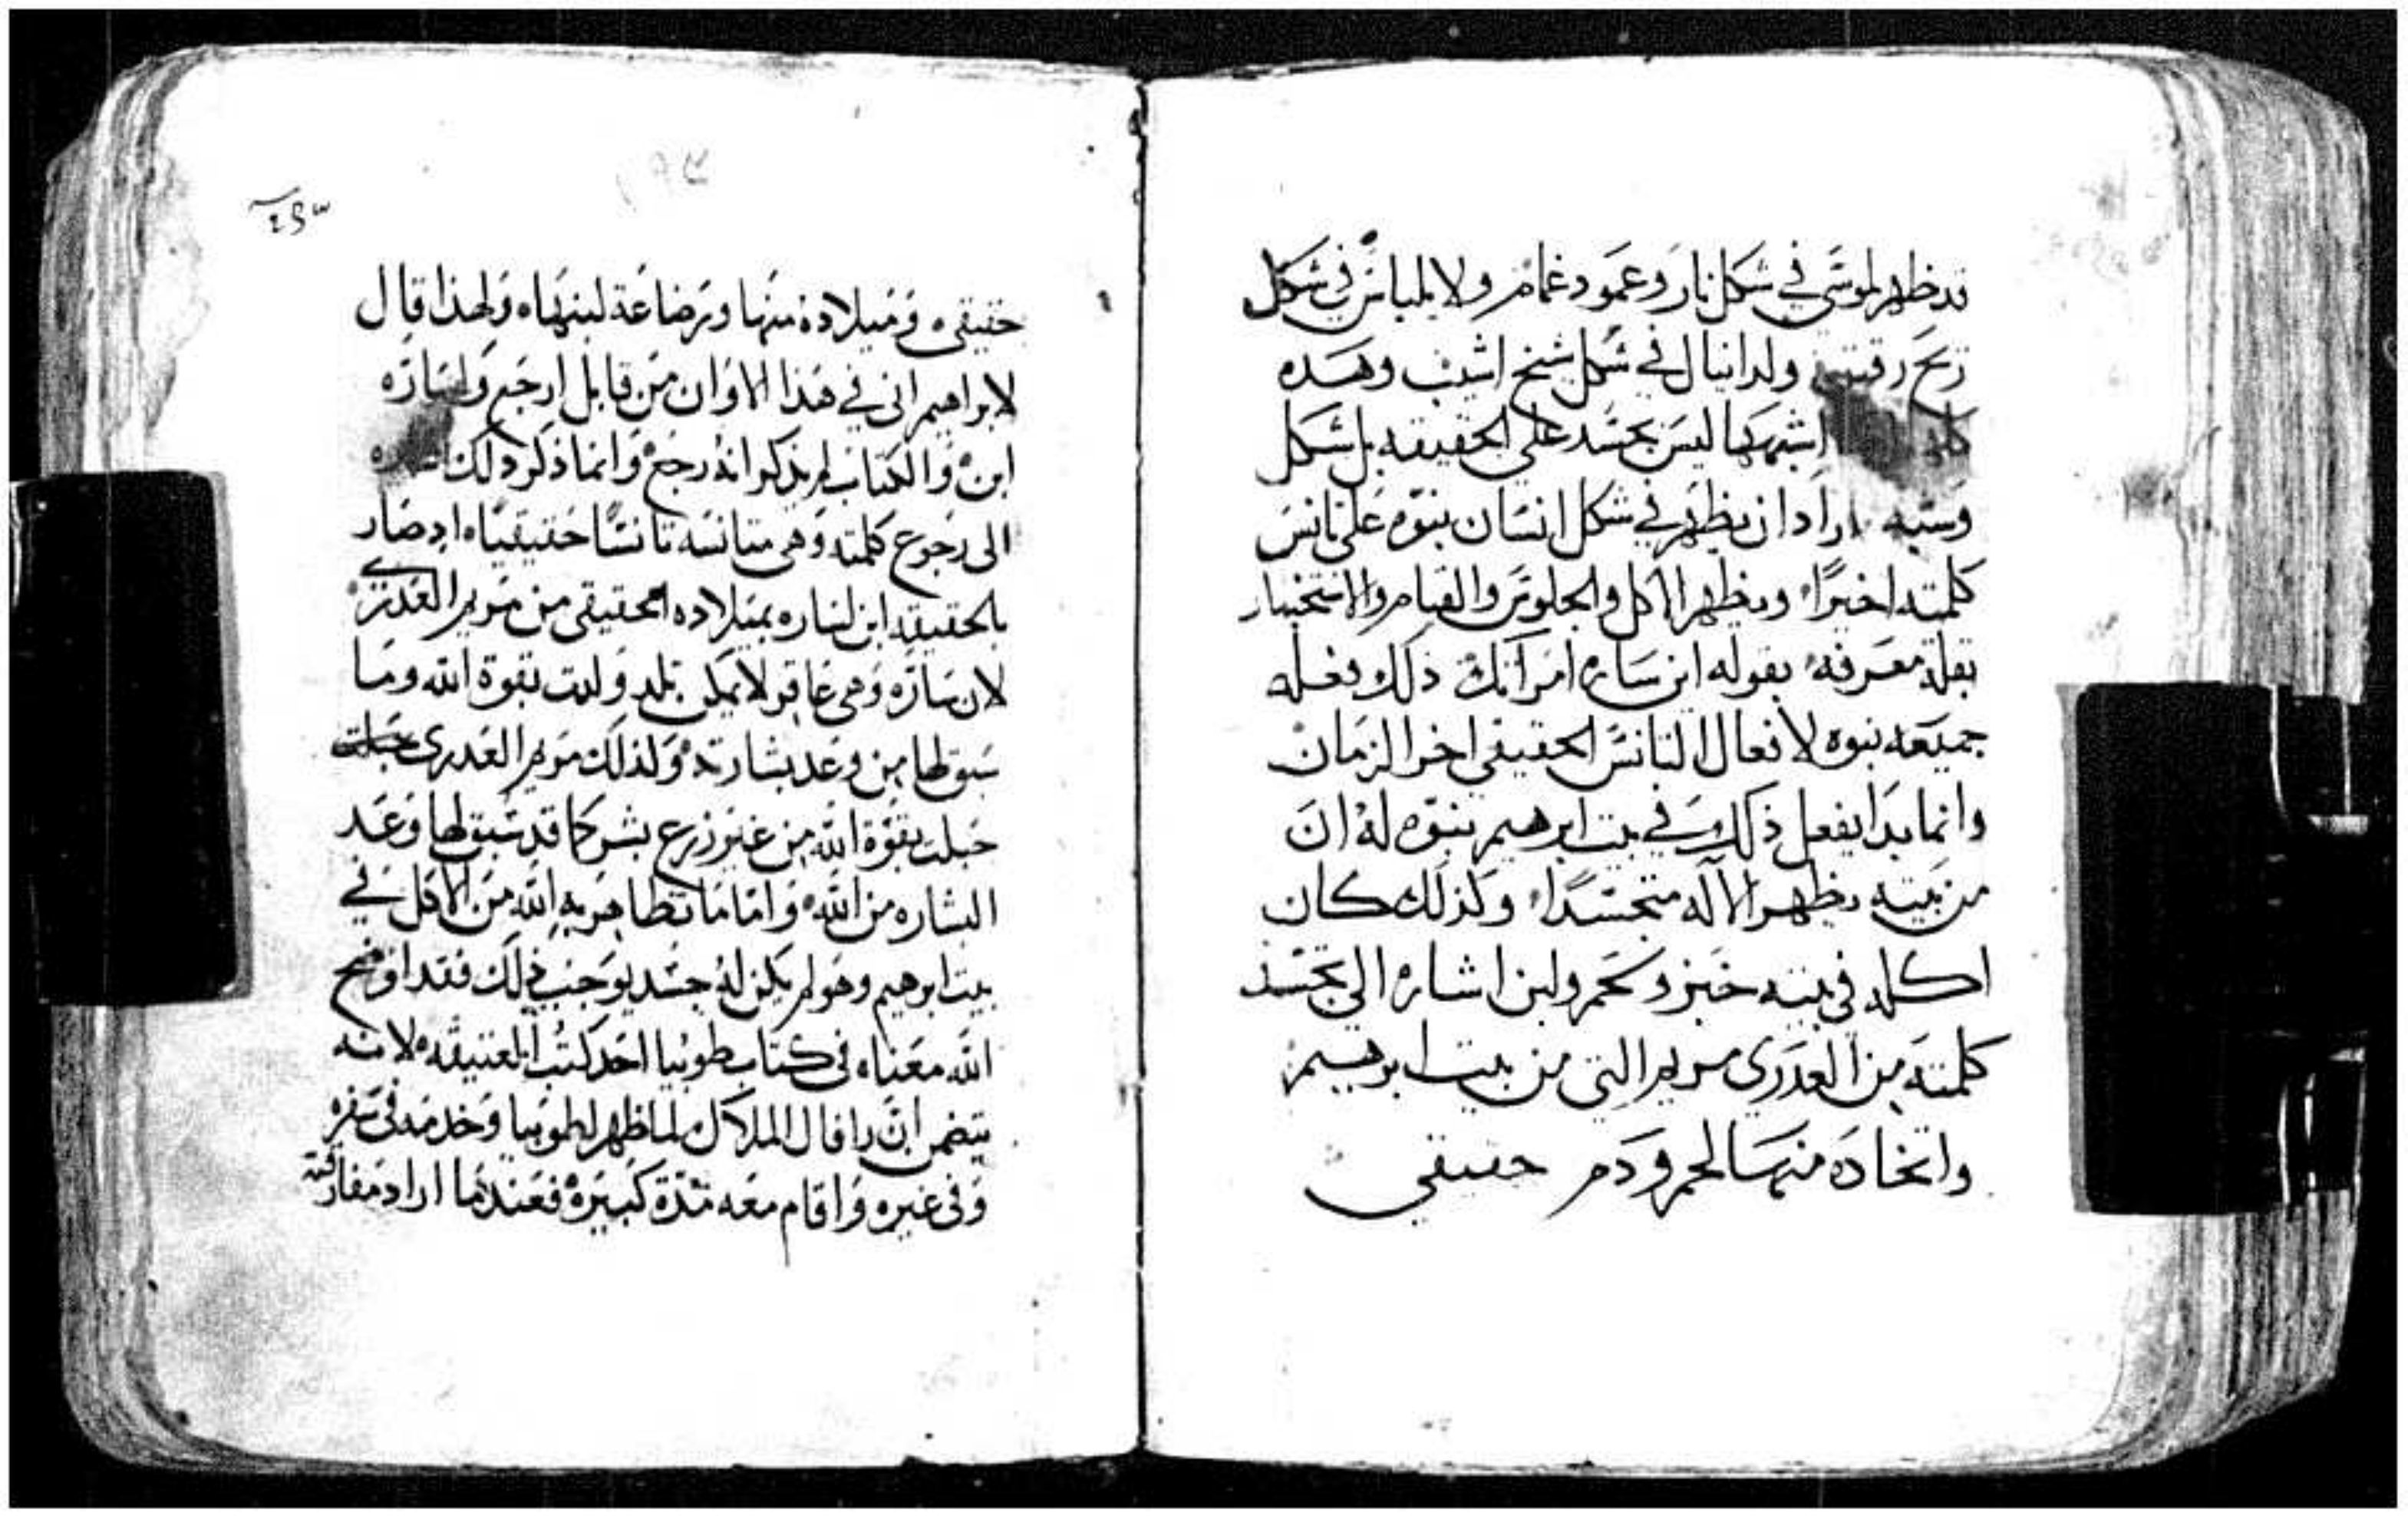 قد ظهر لموسي في شكل نار وعمود غمام ولايلياس في شكل
ريح رقيق ولدانيال في شكل شيخ اشيب وهده
كلها اشبهها ليس بجسد علي الحقيقه بل شكل
وشبه اراد ان يظهر في شكل انسان بنبوه علي تانس
كلمته اخيرًا ويظهر الاكل والجلوس والقيام والاستخبار
بقلة معرفه بقوله اين ساره امراتك ذلك فعله
جميعه نبوه لافعال التانس الحقيقي اخر الزمان
وانما بدا يفعل ذلك في بيت ابرهيم بنبوه له ان
من بيته يظهر الاله متجسدًا وكذلك كان
اكله في بيته خبز ولحم ولبن اشاره الي تجسد
كلمته من العدري مريم التي من بيت ابرهيم
واتخاده منها لحم ودم حقيقي
٢٤٣
حقيقي وميلاده منها ورضاعة لبنها ولهذا قال
لابراهيم اني في هذا الاوان من قابل ارجع ولساره
ابن والكتاب لم يذكر انه رجع وانما ذكر ذلك
الى رجوع كلمته وهي متانسه تانسًا حقيقيًا اد صار
بالحقيقه ابن لساره بميلاده الحقيقي من مريم العدري
لان ساره وهي عاقر لا يمكن تلد ولدت بقوة الله وما
سبق لها من وعد بشارته ولذلك مريم العدري
حبلت بقوة الله من غير زرع بشر كما قد سبق لها وعد
البشاره من الله واما ما تظاهر به الله من الاكل في
بيت ابرهيم وهو لم يكن له جسد يوجب ذلك فقد اوضح
الله معناه في كتاب طوبيا احد كتب العتيقه لانه
يتضمن ان رافال الملاك لما ظهر لطوبيا وخدمه في سفره
وفي غيره واقام معه مدة كبيرة فعندما اراد مفارقته